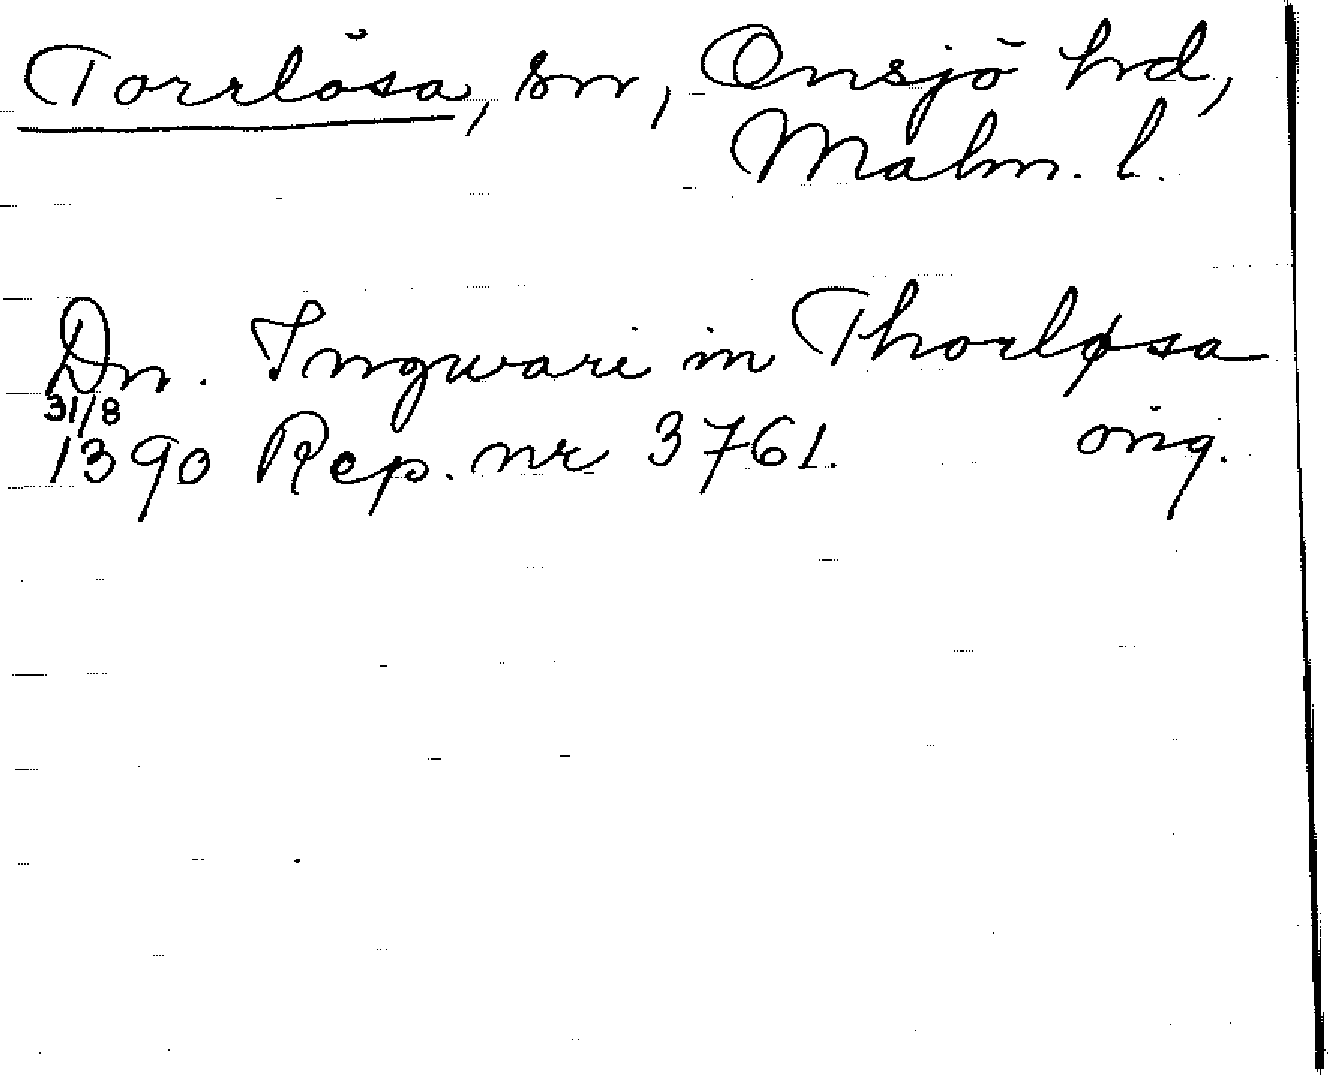 Torrlösa, sn, Onsjö hd,
Malm. l.
Dn. Ingwari in Thorløsa
31/8
1390 Rep. nr 3761. orig.